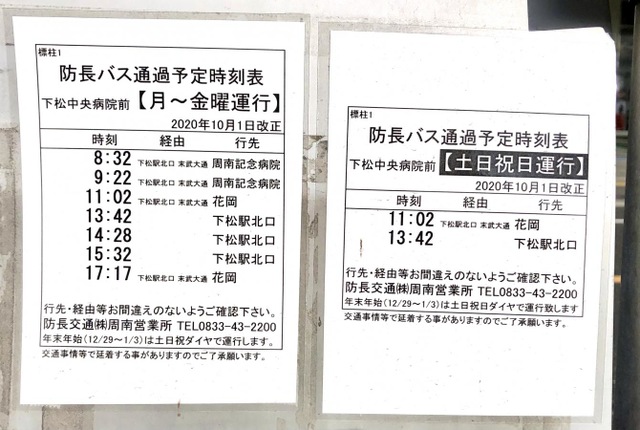 標柱1
防長バス通過予定時刻表
下松中央病院前【月～金曜運行】
2020年10月1日改正
時刻 経由 行先
8:32 下松駅北口 末武大通 周南記念病院
9:22 下松駅北口 末武大通 周南記念病院
11:02 下松駅北口 末武大通 花岡
13:42 下松駅北口
14:28 下松駅北口
15:32 下松駅北口
17:17 下松駅北口 末武大通 花岡
行先・経由等お間違えのないようご確認下さい。
防長交通㈱周南営業所 TEL0833-43-2200
年末年始(12/29～1/3)は土日祝ダイヤで運行します。
交通事情等で延着する事がありますのでご了承願います。
標柱1
防長バス通過予定時刻表
下松中央病院前【土日祝日運行】
2020年10月1日改正
時刻 経由 行先
11:02 下松駅北口 末武大通 花岡
13:42 下松駅北口
行先・経由等お間違えのないようご確認下さい。
防長交通㈱周南営業所 TEL0833-43-2200
年末年始(12/29～1/3)は土日祝ダイヤで運行致します
交通事情等で延着する事がありますのでご了承願います。